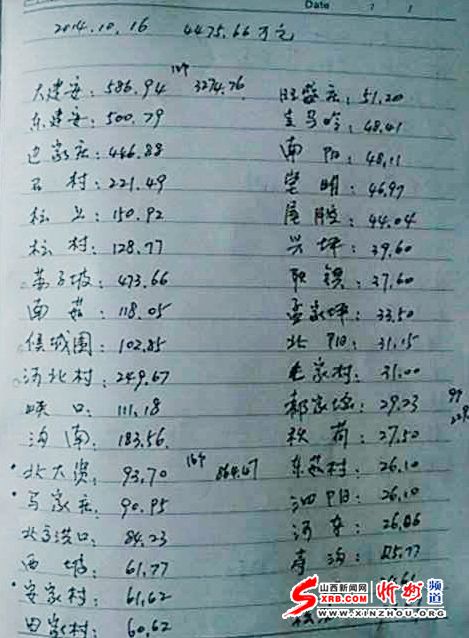 Date
2014.10.16 4475.66万元
大建安：586.94 3274.76
东建安：500.79
边家庄：446.88
石村：221.49
松上：150.92
松村：128.77
茹子坡：473.66
南茹：118.05
侯城围：102.85
河北村：249.67
峡口：111.18
沟南：183.56
北大贤，93.70 864.47
马家庄：90.95
北高洪口：84.23
西坡：61.77
安家村：61.62
田家村：60.62
51.20
48.41
南阳：48.11
望明：46.97
尾腰：44.04
兴坪：39.60
耿镇：37.60
孟家坪：33.50
北阳：31.15
毛家村：31.00
郝家坡：29.23
秋荷：27.50
东茹村：26.10
泗阳：26.10
河东：26.06
山西新闻网
SXRB.COM
忻州频道
WWW.XINZHOU.ORG